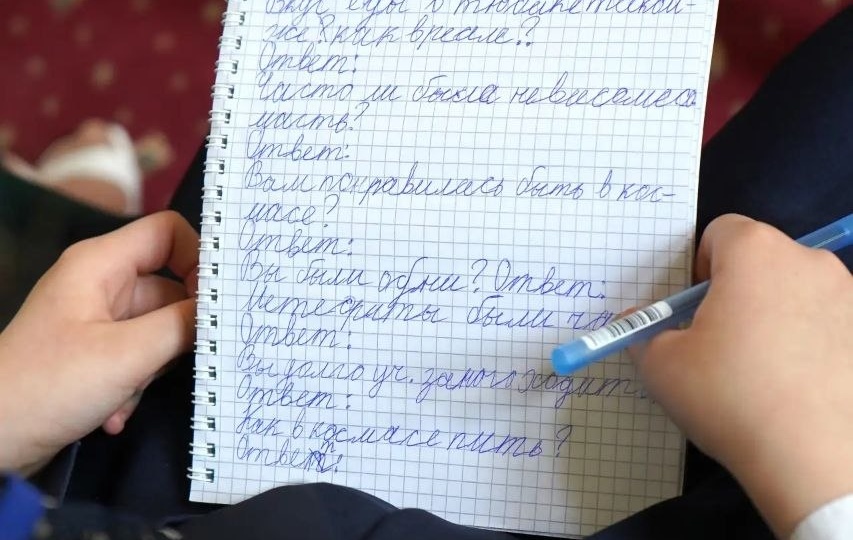 Вкус еды в тюбике такой-
же? как в реале?
Ответ:
Часто ли была невисомасо
масть?
Ответ:
Вам понравилась быть в кос-
масе?
Ответ:
Вы были одни? Ответ:
Метеориты были
Ответ:
Вы долго уч.
Ответ:
Как в космасе пить?
Ответ: